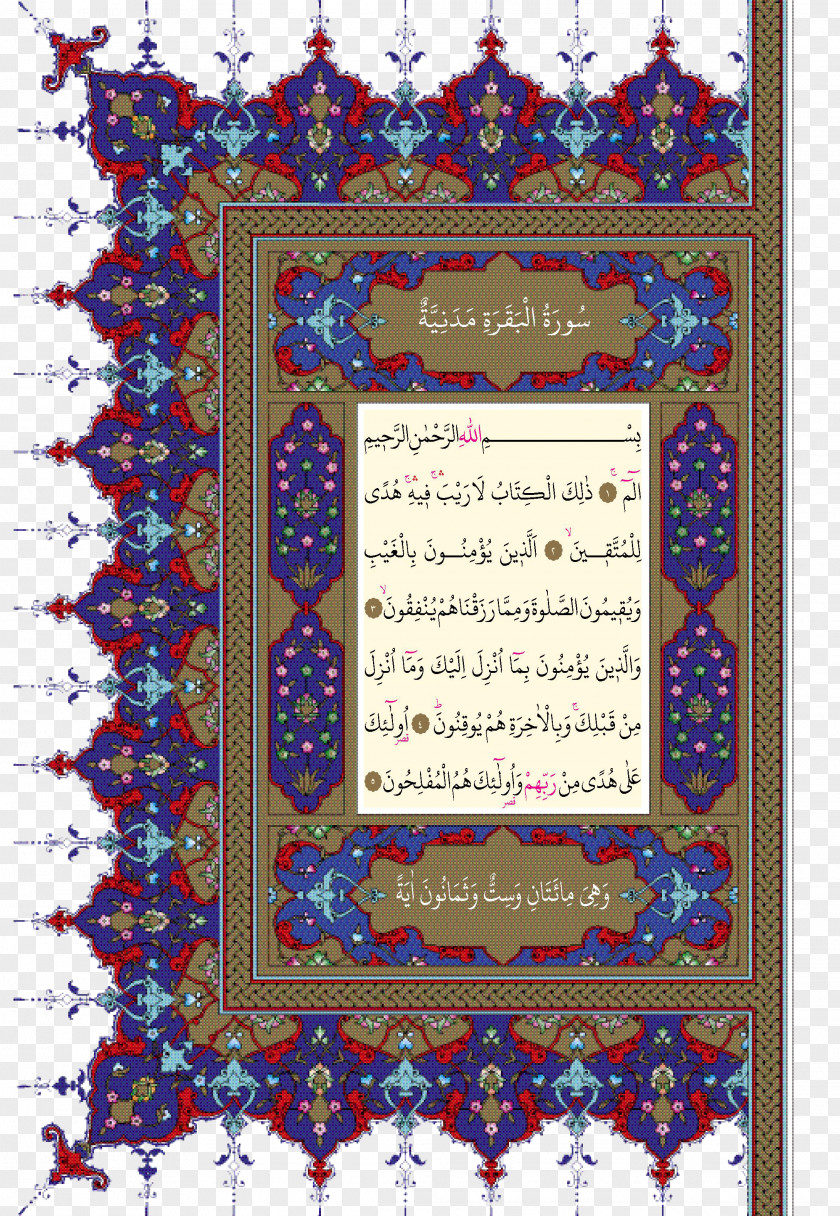 سُورَةُ الْبَقَرَةِ مَدَنِيَّةٌ
بِسْــــــــــمِ اللّٰهِ الرَّحْمٰنِ الرَّحٖيمِ
الٓمٓ ۚ ﴿١﴾ ذٰلِكَ الْكِتَابُ لَا رَيْبَ ۛ فٖيهِ ۛ هُدًى
لِلْمُتَّقٖينَ ۙ ﴿٢﴾ اَلَّذٖينَ يُؤْمِنُونَ بِالْغَيْبِ
وَيُقٖيمُونَ الصَّلٰوةَ وَمِمَّا رَزَقْنَاهُمْ يُنْفِقُونَ ۙ ﴿٣﴾
وَالَّذٖينَ يُؤْمِنُونَ بِمَٓا اُنْزِلَ اِلَيْكَ وَمَٓا اُنْزِلَ
مِنْ قَبْلِكَ ۚ وَبِالْاٰخِرَةِ هُمْ يُوقِنُونَ ؕ ﴿٤﴾ اُو۬لٰٓئِكَ
قصر
عَلٰى هُدًى مِنْ رَبِّهِمْ وَاُو۬لٰٓئِكَ هُمُ الْمُفْلِحُونَ ﴿٥﴾
قصر
وَهِىَ مِائَتَانِ وَسِتٌّ وَثَمَانُونَ اٰيَةً